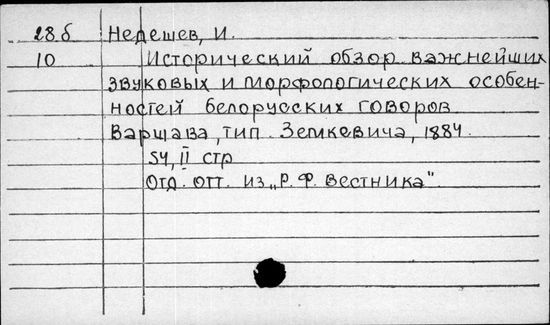 28.б Недешев, И.
10 Исторический обзор важнейших
звуковых и морфологических особен-
ностей белорусских говоров
Варшава, тип. Земкевича, 1884.
54, II стр
Отд. отт. из „Р. Ф. Вестника".